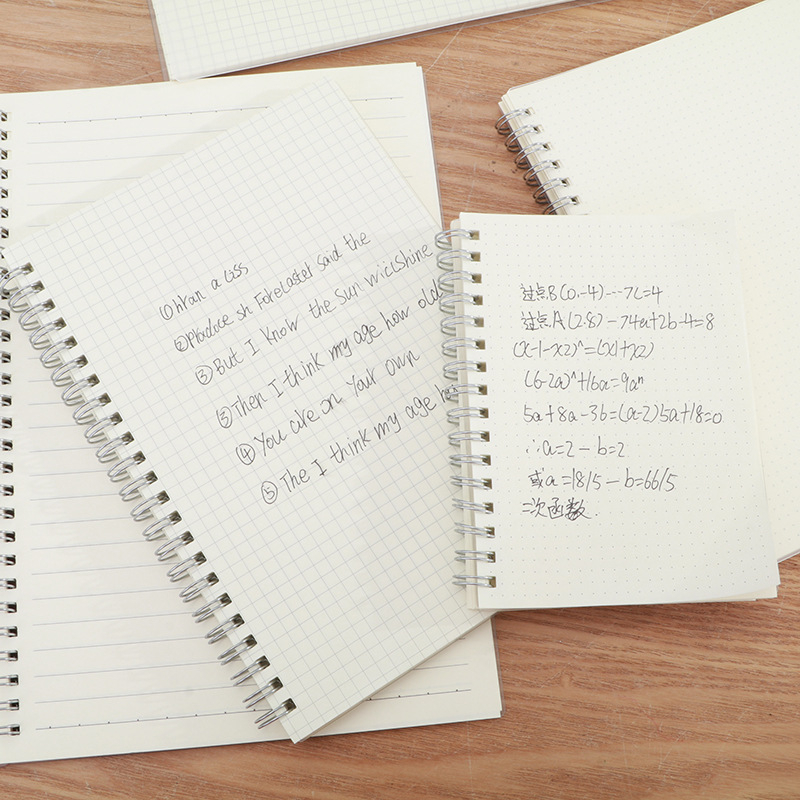 ① htan a liss
② Pladice sh Forelastet Said the
③ But I know the Sun wiclshine
③ Then I think my age how old
④ You are on Your own
⑤ The I think my age
过点B(0,-4)---7L=4
过点A(2.8)-74a+2b-4=8
(x-1-x2)^=(x1+x2)
(6-2a)^+16a=9a^
5a+8a-3b=(a-2)5a+18=0
∴a=2-b=2
或a=18/5-b=66/5
二次函数.